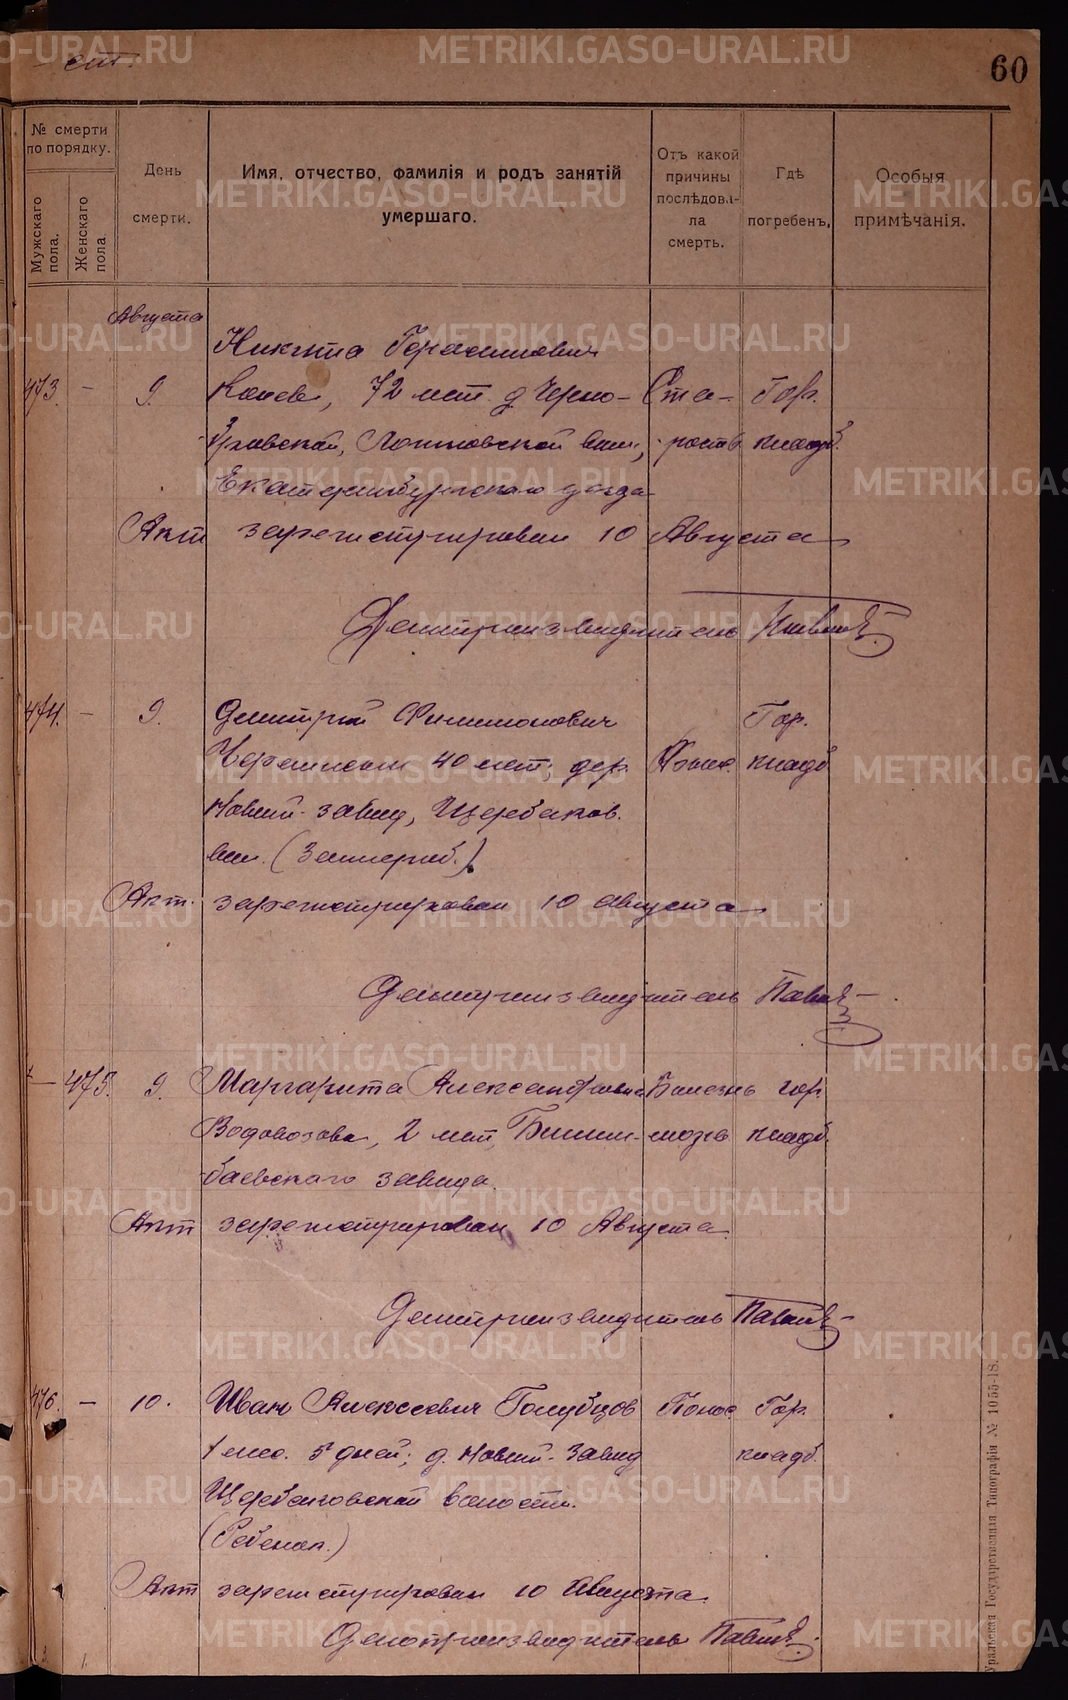 60
№ смерти по порядку.
Мужскаго пола.
Женскаго пола
День смерти.
Имя, отчество, фамилія и родъ занятій умершаго.
Отъ какой причины послѣдовала смерть.
Гдѣ погребенъ.
Особыя примѣчанія.
Августа
Никита Герасимович
473. — 9. Конев, 72 лет. д. Черно- Ста- Гор.
Лопиловской вол., рость кладб.
Екатеринбургского уезда
Акт зарегистрирован 10 Августа
Делопроизводитель
474. — 9. Дмитрий Филимонович Гор.
40 лет; дер. кладб
Новый-завод, Щербаков.
вол.
Акт. зарегистрирован 10 августа
Делопроизводитель
— 475. 9. Маргарита Александровна Болезнь гор
Водовозова, 2 лет, Билим- мозга кладб.
баевского завода.
Акт зарегистрирован 10 Августа.
Делопроизводитель
476. — 10. Иван Алексеевич Голубцов Понос Гор.
1 мес. 5 дней; д. Новый-Завод кладб.
Щербаковской волости.
(Ребенок.)
Акт зарегистрирован 10 Августа.
Делопроизводитель
Уральская Государственная Типографія № 1055-18.
METRIKI.GASO-URAL.RU